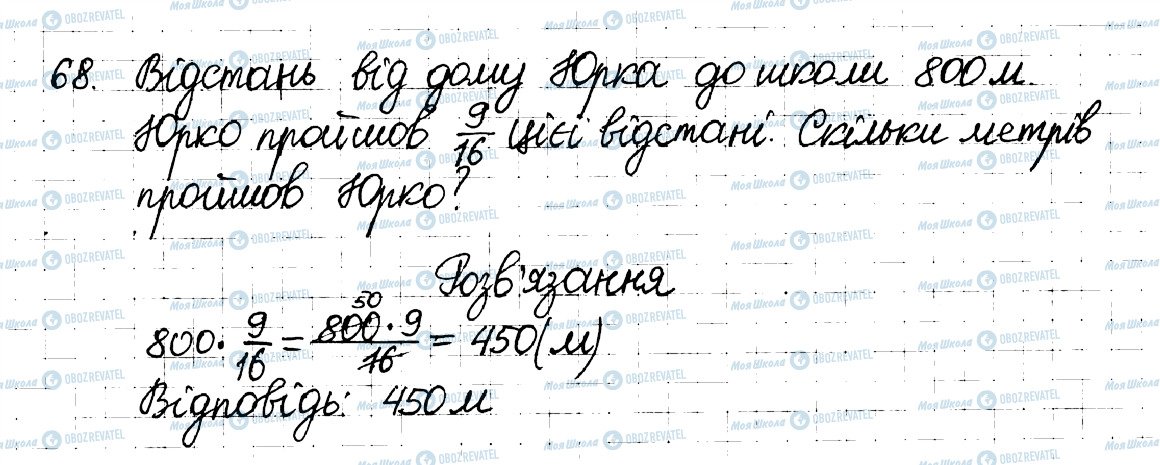 68. Відстань від дому Юрка до школи 800 м.
Юрко пройшов 9/16 цієї відстані. Скільки метрів
пройшов Юрко?
Розв'язання
800 · 9/16 = 800 · 9/16 = 450 (м)
50
Відповідь: 450 м